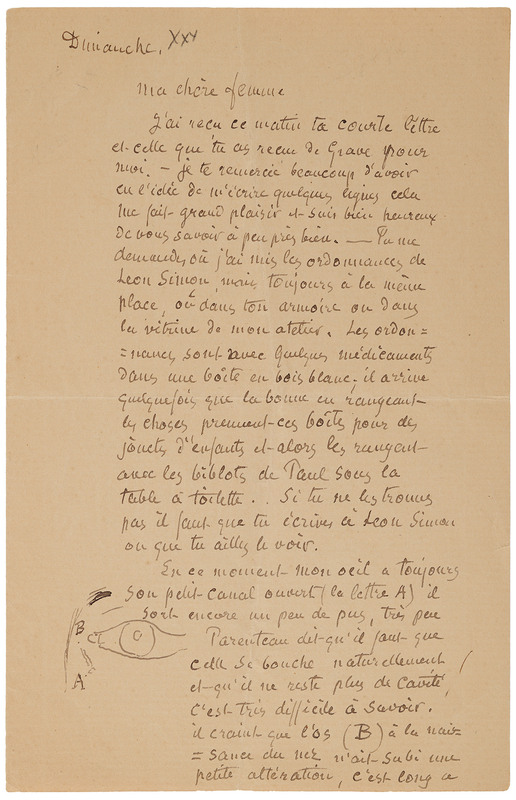 Dimanche. xxx
Ma chère femme
J'ai reçu ce matin ta courte lettre
et celle que tu as reçu de Grave pour
moi. — je te remercie beaucoup d'avoir
eu l'idée de m'écrire quelques lignes cela
me fait grand plaisir et suis bien heureux
de vous savoir à peu près bien. — Tu me
demandes où j'ai mis les ordonnances de
Leon Simon, mais toujours à la même
place, où dans ton armoire ou dans
la vitrine de mon atelier. Les ordon=
=nances sont avec quelques médicaments
dans une boîte en bois blanc, il arrive
quelquefois que la bonne en rangeant
les choses prennent ces boîtes pour des
jouets d'enfants et alors les rangent
avec les biblots de Paul sous la
table à toilette.. Si tu ne les trouves
pas il faut que tu écrives à Leon Simon
ou que tu ailles le voir.
En ce moment mon oeil a toujours
son petit canal ouvert (la lettre A) il
sort encore un peu de pus, très peu
Parenteau dit qu'il faut que
celle se bouche naturellement
et qu'il ne reste plus de cavité,
c'est très difficile à savoir.
il craint que l'os (B) à la nais=
=sance du nez n'ait subi une
petite altération, c'est long a
B
A